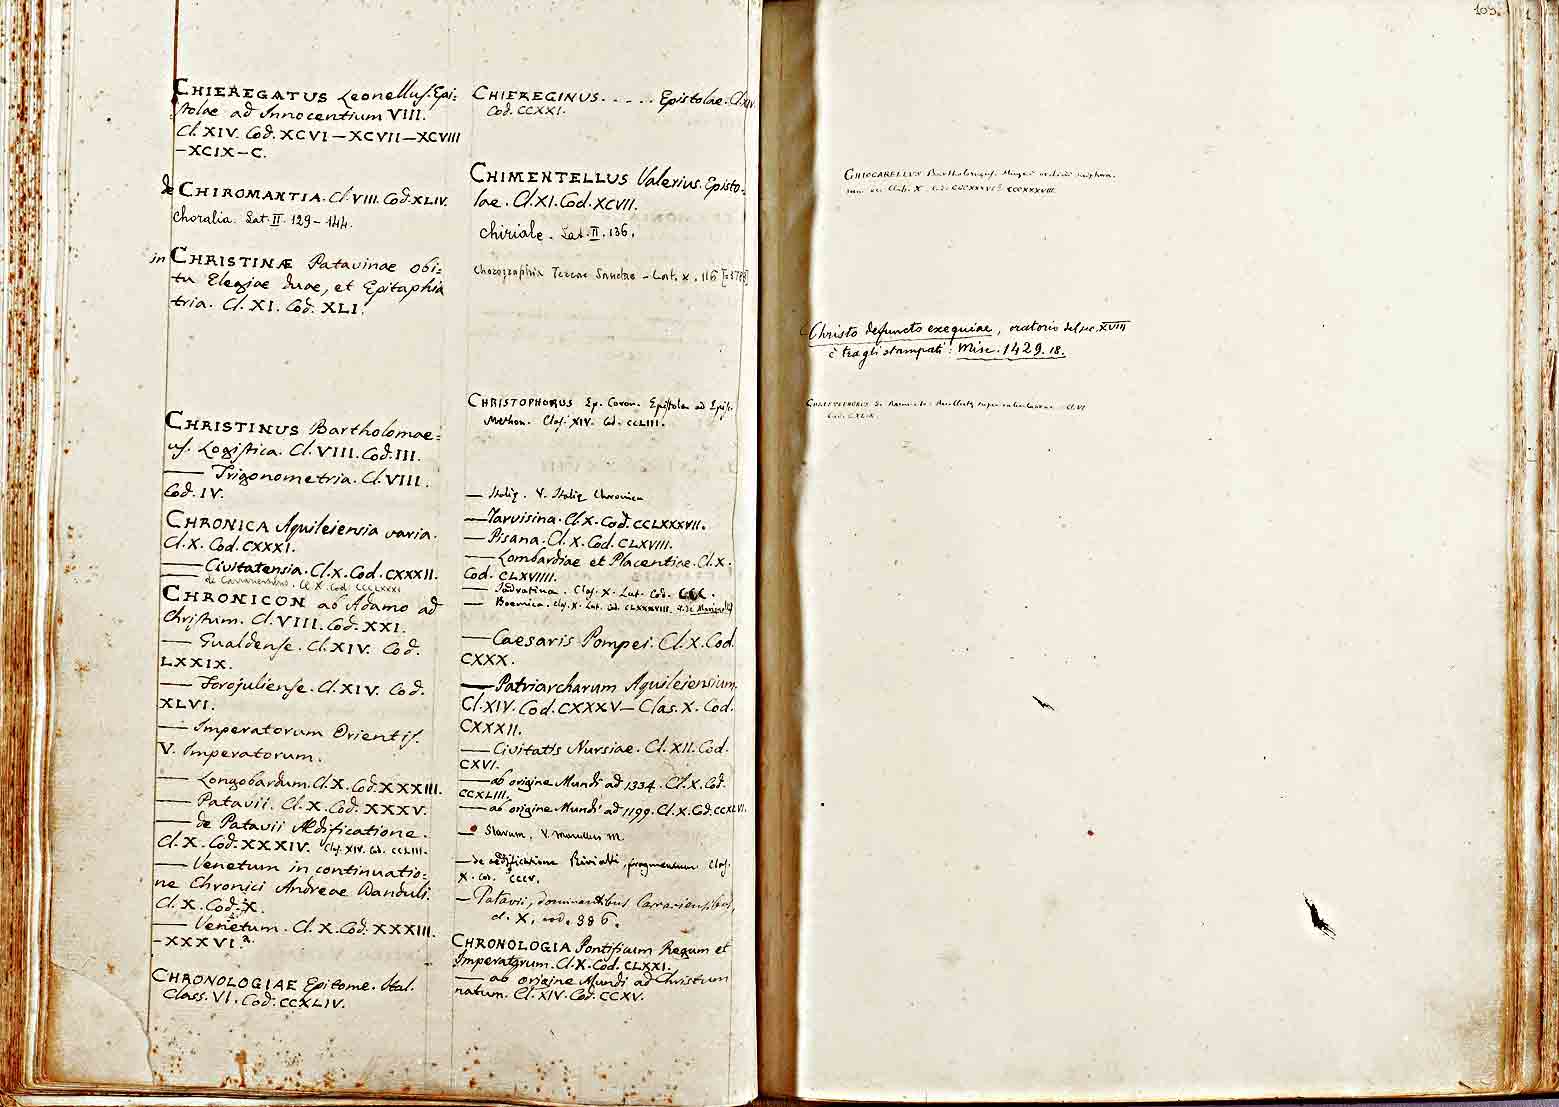 CHIEREGATUS Leonellus. Epi:
stolae ad Innocentium VIII.
Cl. XIV. Cod. XCVI – XCVII – XCVIII
– XCIX – C.
de CHIROMANTIA. Cl. VIII. Cod. XLIV.
Choralia. Lat. II. 129 – 144.
in CHRISTINÆ Patavinae obi:
tu Elegiae duae, et Epitaphia
tria. Cl. XI. Cod. XLI.
CHRISTINUS Bartholomae:
us. Logistica. Cl. VIII. Cod. III.
— Trigonometria. Cl. VIII.
Cod. IV.
CHRONICA Aquileiensia varia.
Cl. X. Cod. CXXXI.
— Civitatensia. Cl. X. Cod. CXXXII.
de Carrariensibus. Cl. X. Cod. CCCLXXXI
CHRONICON ab Adamo ad
Christum. Cl. VIII. Cod. XXI.
— Gualdense. Cl. XIV. Cod.
LXXIX.
— Forojuliense. Cl. XIV. Cod.
XLVI.
— Imperatorum Orientis.
V. Imperatorum.
— Longobardum. Cl. X. Cod. XXXIII.
— Patavii. Cl. X. Cod. XXXV.
— de Patavii Ædificatione.
Cl. X. Cod. XXXIV. Clas. XIV. Cod. CCLIII.
— Venetum in continuatio:
ne Chronici Andreae Danduli.
Cl. X. Cod. X.
— Venetum. Cl. X. Cod. XXXIII.
– XXXVI. a.
CHRONOLOGIAE Epitome. Ital.
Class. VI. Cod. CCXLIV.
CHIEREGINUS. . . . . Epistolae. Cl. XIV.
Cod. CCXXI.
CHIMENTELLUS Valerius. Episto:
lae. Cl. XI. Cod. XCVII.
Chiriale. Lat. II. 136.
Chorographia Terrae Sanctae – Lat. X. 116
CHRISTOPHORUS Ep. Coron. Epistola ad Epis.
Methon. Clas. XIV. Cod. CCLIII.
— Italiæ. V. Italiæ Chronica
— Tarvisina. Cl. X. Cod. CCLXXXVII.
— Pisana. Cl. X. Cod. CLXVIII.
— Lombardiae et Placentiae. Cl. X.
Cod. CLXVIIII.
— Jadratina. Clas. X. Lat. Cod.
— Boemica. Clas. X. Lat. Cod. CLXXXVIII.
— Caesaris Pompei. Cl. X. Cod.
CXXX.
— Patriarcharum Aquileiensium.
Cl. XIV. Cod. CXXXV – Clas. X. Cod.
CXXXII.
— Civitatis Nursiae. Cl. XII. Cod.
CXVI.
— ab origine Mundi ad 1334. Cl. X. Cod.
CCXLIII.
— ab origine Mundi ad 1199. Cl. X. Cod. CCXLVI.
— Slavum, V. Marullus M.
— de ædificatione Rivialti, fragmentum Clas.
X. Cod. CCCV.
— Patavii, dominantibus Carrariensibus,
cl. X, cod. 386.
CHRONOLOGIA Pontificum Regum et
Imperatorum. Cl. X. Cod. CLXXI.
— ab origine Mundi ad Christum
natum. Cl. XIV. Cod. CCXV.
103.
CHIOCARELLUS Bartholomaeus.
Christo defuncto exequiae, oratorio del sec. XVIII
è tra gli stampati: Misc. 1429. 18.
CHRISTOPHORUS de